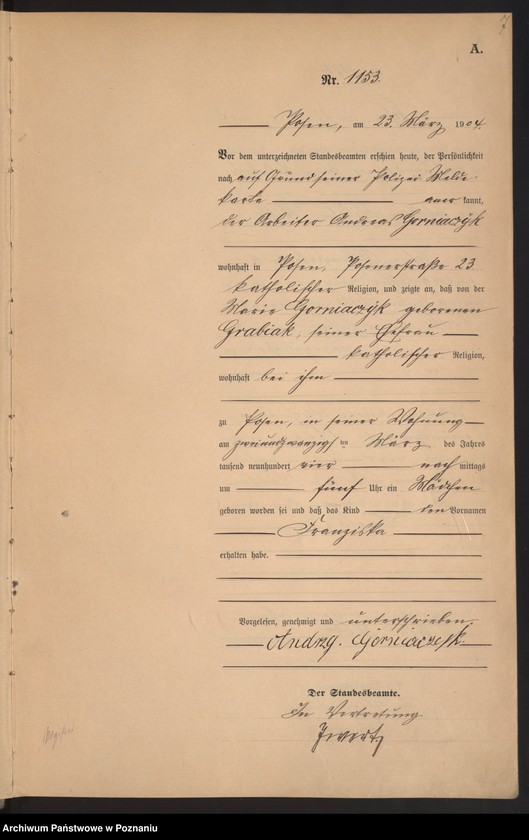 7
A.
Nr. 1153.
Posen, am 23. März 1904.
Vor dem unterzeichneten Standesbeamten erschien heute, der Persönlichkeit
nach auf Grund seiner Polizei Melde-
karte anerkannt,
der Arbeiter Andreas Gorniaczÿk
wohnhaft in Posen, Posenerstraße 23
katholischer Religion, und zeigte an, daß von der
Marie Gorniaczÿk geborenen
Grabiak, seiner Ehefrau
katholischer Religion,
wohnhaft bei ihm
zu Posen, in seiner Wohnung
am zweiundzwanzigsten März des Jahres
tausend neunhundert vier nachmittags
um fünf Uhr ein Mädchen
geboren worden sei und daß das Kind den Vornamen
Franziska
erhalten habe.
Vorgelesen, genehmigt und unterschrieben.
Gorniaczyk.
Der Standesbeamte.
In Vertretung
Archiwum Państwowe w Poznaniu